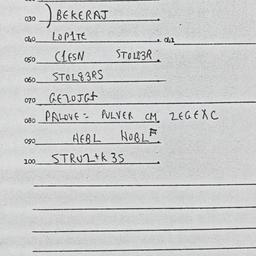 030 BEKERAJ
040 LOP1TE
050 C1ESN STOL83R
060 STOL83RS
070 GEZOJGT
080 PALOVE = PULVER CM ZEGEXC
090 HEBL HOBL
100 STRUZ+K3S